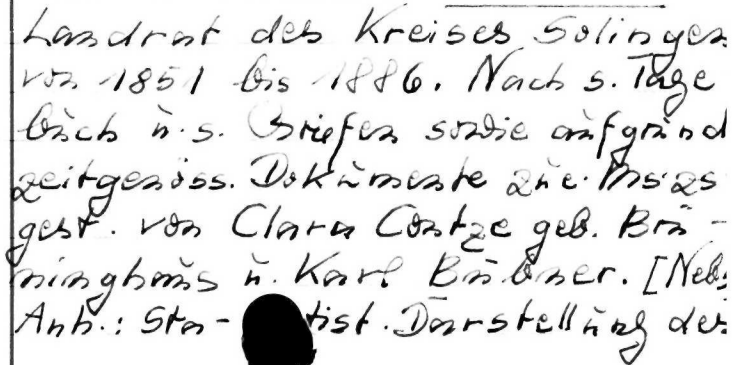 Landrat des Kreises Solingen
von 1851 bis 1886. Nach s. Tage
buch u. s. Briefen sowie aufgrund
zeitgenöss. Dokumente zus.
gest. von Clara Contze geb. Brü-
ninghaus u. Karl Bübner. [Nebs
Anh.: Sta- tist. Darstellung des